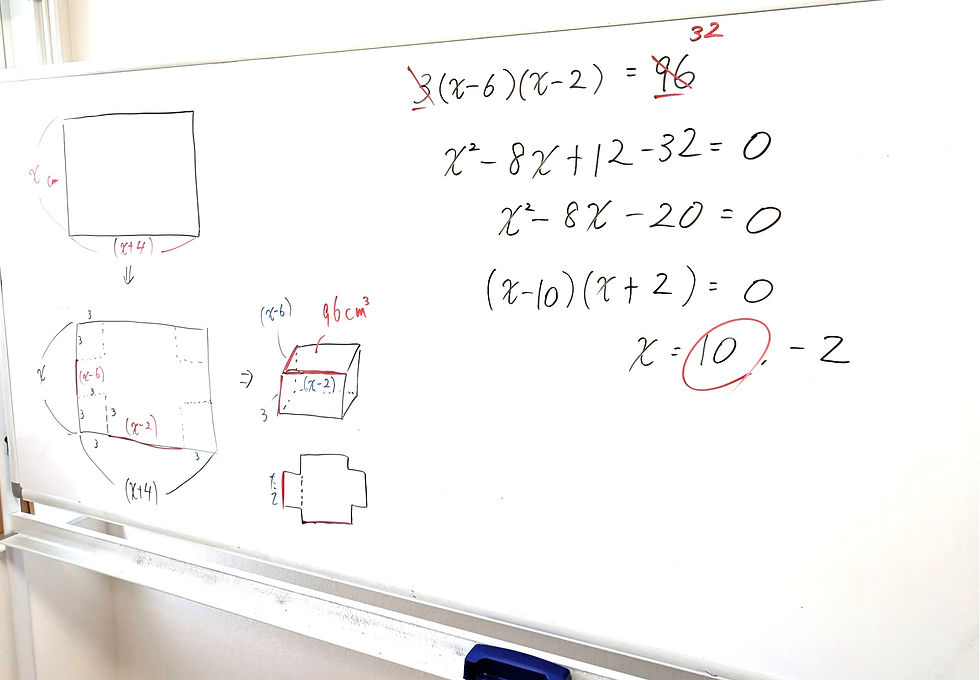 32
3(x-6)(x-2) = 96
x²-8x+12-32=0
x²-8x-20=0
(x-10)(x+2)=0
x=10, -2
x cm
(x+4)
⇓
3
3
x
(x-6)
3
3
3
(x-2)
3
3
(x+4)
⇒
(x-6)
96cm³
(x-2)
3